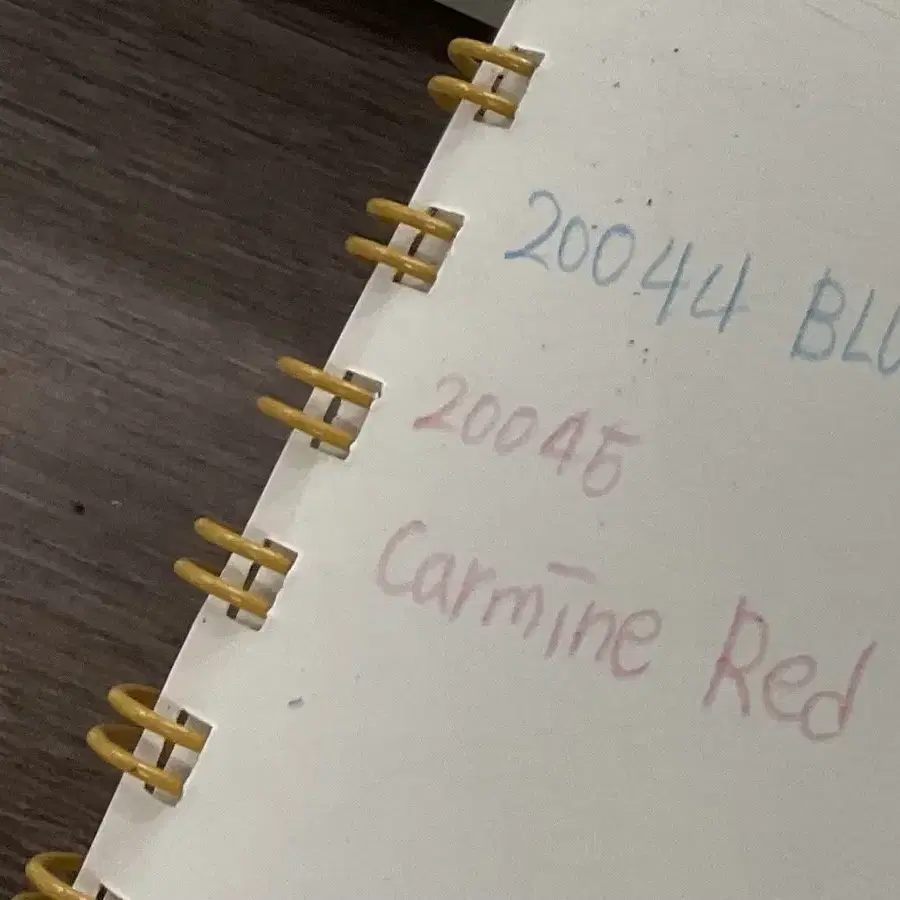 20044 BLU
20045
Carmine Red